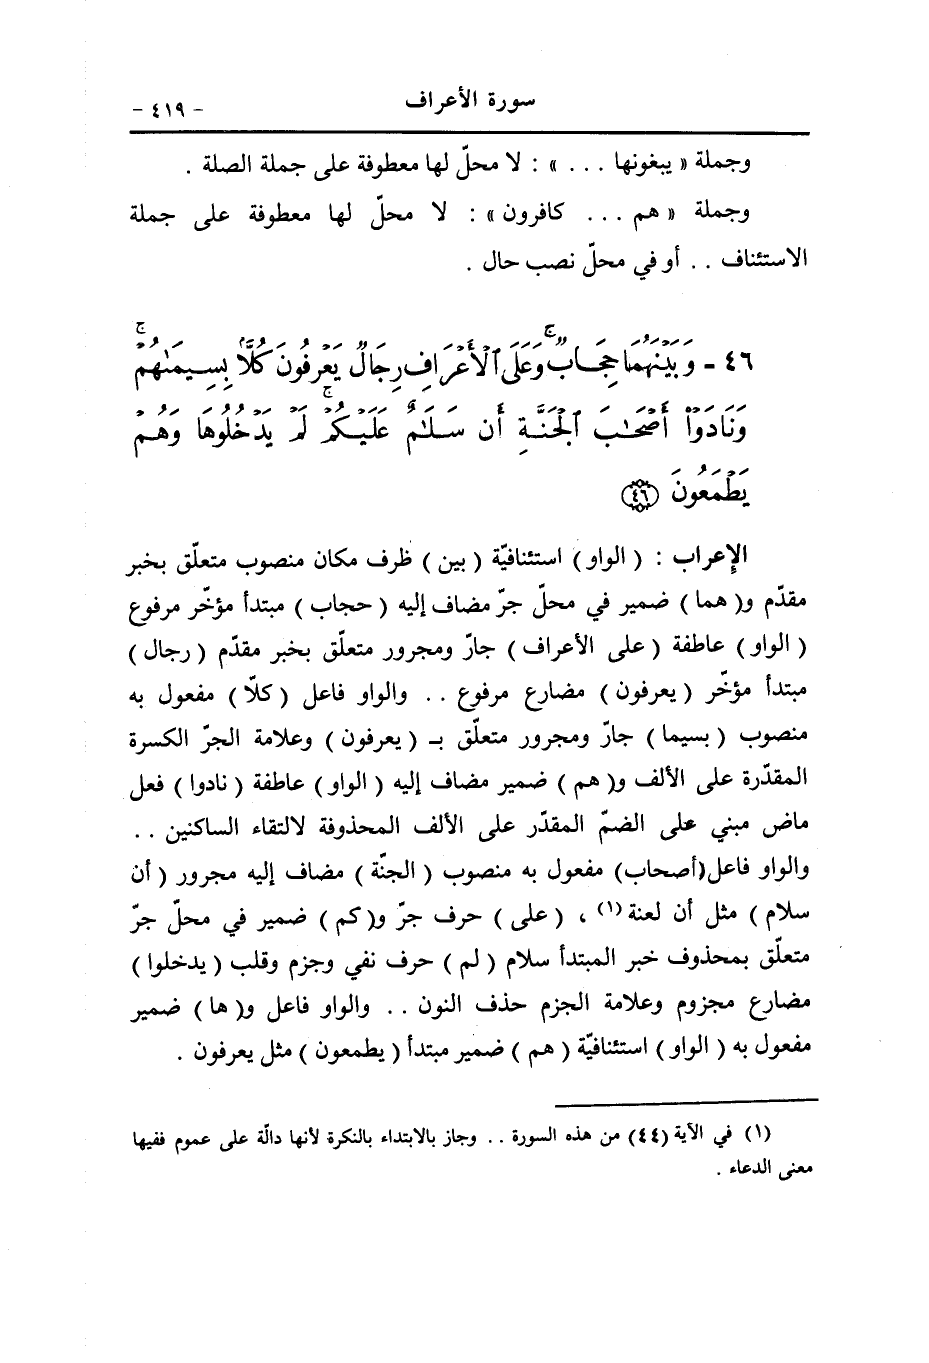 سورة الأعراف - ٤١٩ -
وجملة « يبغونها . . . » : لا محلّ لها معطوفة على جملة الصلة .
وجملة « هم . . . كافرون » : لا محلّ لها معطوفة على جملة
الاستئناف . . أو في محلّ نصب حال .
٤٦ - وَبَيْنَهُمَا حِجَابٌ ۚ وَعَلَى ٱلْأَعْرَافِ رِجَالٌ يَعْرِفُونَ كُلًّۢا بِسِيمَىٰهُمْ ۚ
وَنَادَوْا۟ أَصْحَٰبَ ٱلْجَنَّةِ أَن سَلَٰمٌ عَلَيْكُمْ ۚ لَمْ يَدْخُلُوهَا وَهُمْ
يَطْمَعُونَ ﴿٤٦﴾
الإعراب : ( الواو ) استئنافيّة ( بين ) ظرف مكان منصوب متعلّق بخبر
مقدّم و( هما ) ضمير في محلّ جرّ مضاف إليه ( حجاب ) مبتدأ مؤخّر مرفوع
( الواو ) عاطفة ( على الأعراف ) جارّ ومجرور متعلّق بخبر مقدّم ( رجال )
مبتدأ مؤخّر ( يعرفون ) مضارع مرفوع . . والواو فاعل ( كلّا ) مفعول به
منصوب ( بسيما ) جارّ ومجرور متعلّق بـ ( يعرفون ) وعلامة الجرّ الكسرة
المقدّرة على الألف و( هم ) ضمير مضاف إليه ( الواو ) عاطفة ( نادوا ) فعل
ماض مبني على الضمّ المقدّر على الألف المحذوفة لالتقاء الساكنين . .
والواو فاعل(أصحاب) مفعول به منصوب ( الجنّة ) مضاف إليه مجرور ( أن
سلام ) مثل أن لعنة (١) ، ( على ) حرف جرّ و( كم ) ضمير في محلّ جرّ
متعلّق بمحذوف خبر المبتدأ سلام ( لم ) حرف نفي وجزم وقلب ( يدخلوا )
مضارع مجزوم وعلامة الجزم حذف النون . . والواو فاعل و( ها ) ضمير
مفعول به ( الواو ) استئنافيّة ( هم ) ضمير مبتدأ ( يطمعون ) مثل يعرفون .
(١) في الآية (٤٤) من هذه السورة . . وجاز بالابتداء بالنكرة لأنها دالّة على عموم ففيها
معنى الدعاء .